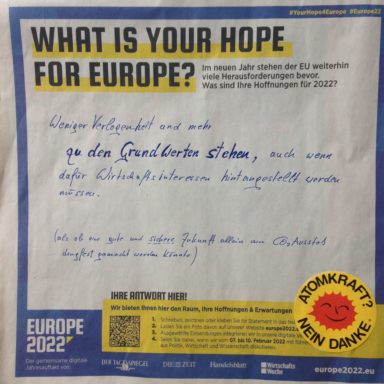 #YourHope4Europe #Europe22
WHAT IS YOUR HOPE
FOR EUROPE?
Im neuen Jahr stehen der EU weiterhin
viele Herausforderungen bevor.
Was sind Ihre Hoffnungen für 2022?
Weniger Verlogenheit und mehr
zu den Grundwerten stehen, auch wenn
dafür Wirtschaftsinteressen hintangestellt werden
müssen.
(als ob eine gute und sichere Zukunft allein am CO2 Ausstoß
dingfest gemacht werden könnte)
IHRE ANTWORT HIER!
Wir bieten Ihnen hier den Raum, Ihre Hoffnungen & Erwartungen
1. Schreiben, zeichnen oder kleben Sie Ihr Statement in das
2. Laden Sie ein Foto davon auf unserer Website europe2022.
3. Ausgewählte Einsendungen integrieren wir in unsere
4. Seien Sie dabei, wenn wir vom 07. bis 10. Februar 2022 mit
aus Politik, Wirtschaft und Wissenschaft diskutieren.
ATOMKRAFT?
NEIN DANKE.
EUROPE
2022
Der gemeinsame digitale
Jahresauftakt von:
DER TAGESSPIEGEL
DIE ZEIT
Handelsblatt
Wirtschafts
Woche
europe2022.eu